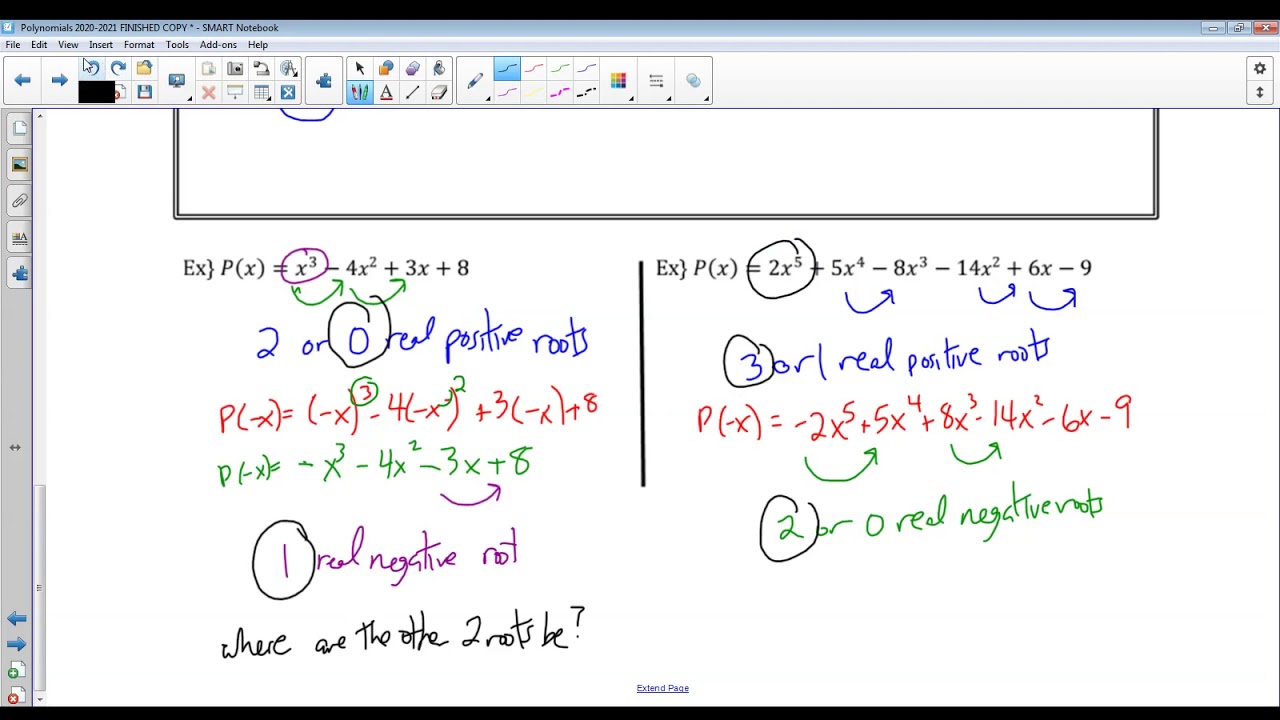 Polynomials 2020-2021 FINISHED COPY * - SMART Notebook
File Edit View Insert Format Tools Add-ons Help
Ex} P(x) = x³ − 4x² + 3x + 8
2 or 0 real positive roots
P(-x) = (-x)³ - 4(-x)² + 3(-x) + 8
P(-x) = - x³ - 4x² - 3x + 8
1 real negative root
where are the other 2 roots be?
Ex} P(x) = 2x⁵ + 5x⁴ − 8x³ − 14x² + 6x − 9
3 or 1 real positive roots
P(-x) = -2x⁵ + 5x⁴ + 8x³ - 14x² - 6x - 9
2 or 0 real negative roots
Extend Page